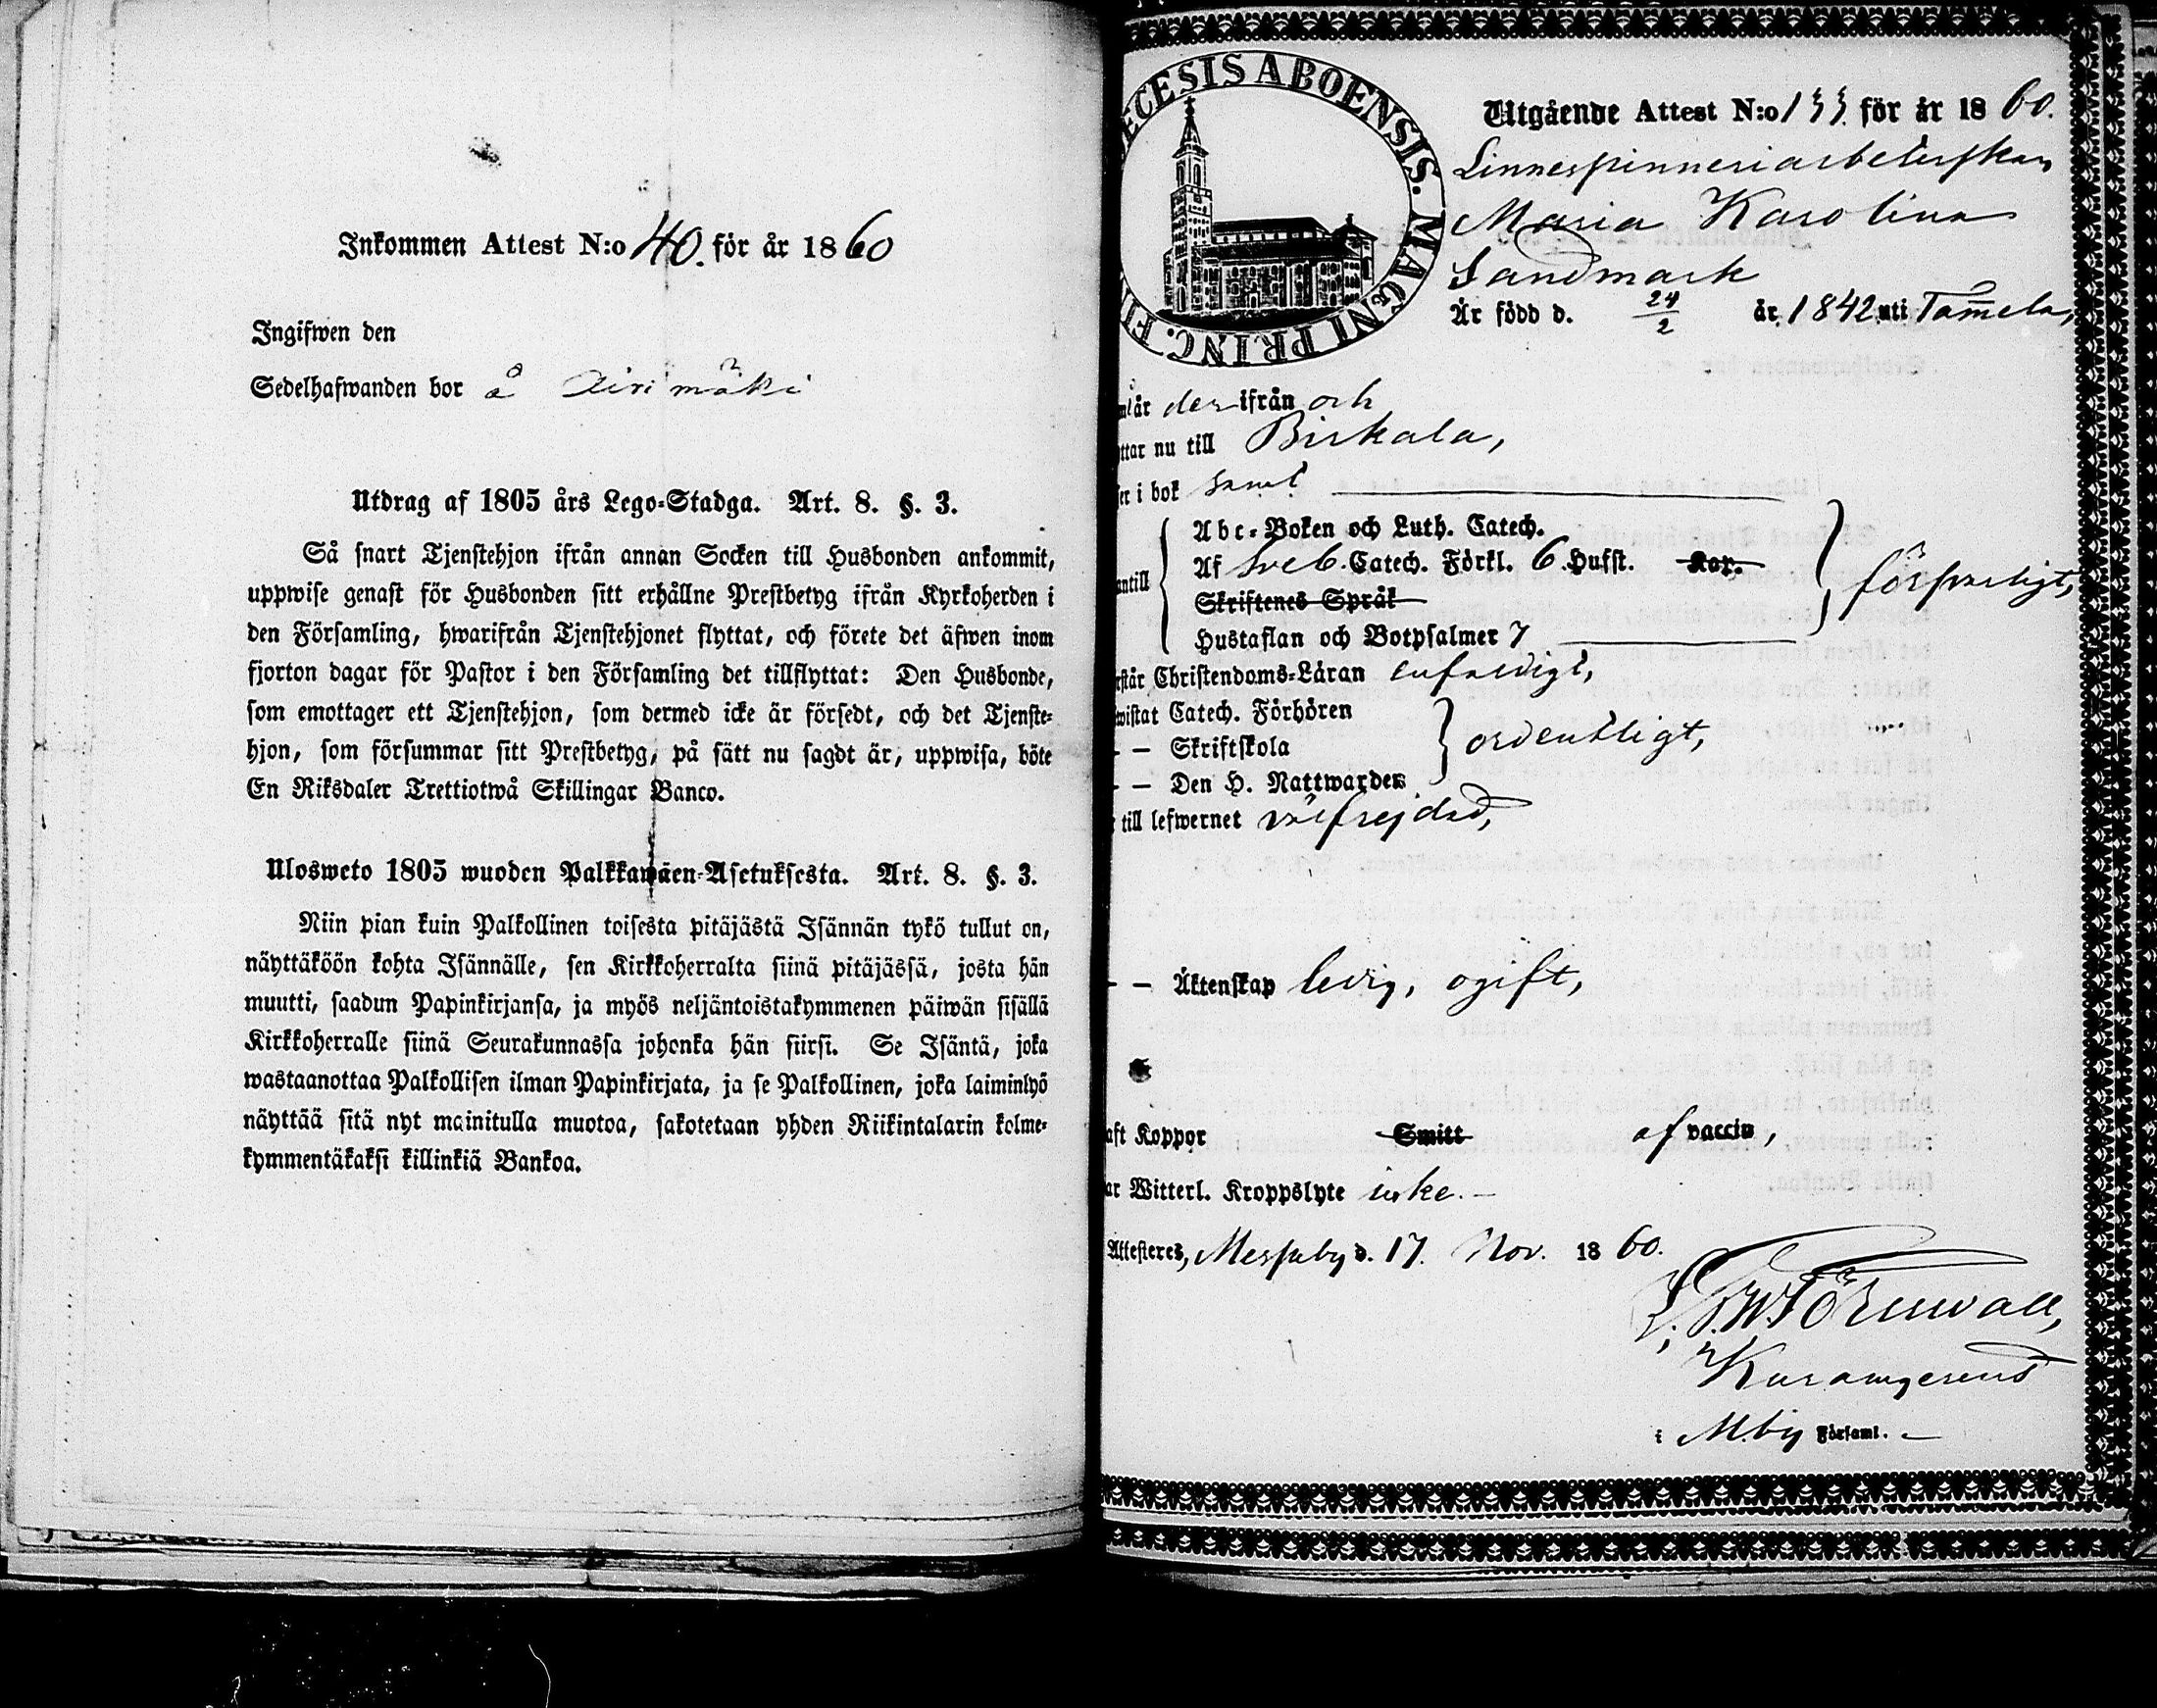 Inkommen Attest N:o 40. för år 1860
Ingifwen den
Sedelhafwanden bor å Airimäki
Utdrag af 1805 års Lego-Stadga. Art. 8. §. 3.
Så snart Tjenstehjon ifrån annan Socken till Husbonden ankommit,
uppwise genast för Husbonden sitt erhållne Prestbetyg ifrån Kyrkoherden i
den Församling, hwarifrån Tjenstehjonet flyttat, och förete det äfwen inom
fjorton dagar för Pastor i den Församling det tillflyttat: Den Husbonde,
som emottager ett Tjenstehjon, som dermed icke är försedt, och det Tjenste-
hjon, som försummar sitt Prestbetyg, på sätt nu sagdt är, uppwisa, böte
En Riksdaler Trettiotwå Skillingar Banco.
Ulosweto 1805 wuoden Palkkawäen-Asetuksesta. Art. 8. §. 3.
Niin pian kuin Palkollinen toisesta pitäjästä Isännän tykö tullut on,
näyttäköön kohta Isännälle, sen Kirkkoherralta siinä pitäjässä, josta hän
muutti, saadun Papinkirjansa, ja myös neljäntoistakymmenen päiwän sisällä
Kirkkoherralle siinä Seurakunnassa johonka hän siirsi. Se Isäntä, joka
wastaanottaa Palkollisen ilman Papinkirjata, ja se Palkollinen, joka laiminlyö
näyttää sitä nyt mainitulla muotoa, sakotetaan yhden Riikintalarin kolme-
kymmentäkaksi killinkiä Bankoa.
ECESIS ABOENSIS. MAGNI PRINC. FI
Utgående Attest N:o 133. för år 1860.
Linnespinneriarbeterskan
Maria Karolina
Sandmark
Är född d. 24/2 år 1842 uti Tam̄ela,
är der ifrån och
ttar nu till Birkala,
er i bok samt
Abc-Boken och Luth. Catech.
Af Sveb. Catech. Förkl. 6 Hufst. Kor.
antill
försvarligt,
Skriftenes Språk
Hustaflan och Botpsalmer 7
rstår Christendoms-Läran enfaldigt,
wistat Catech. Förhören
- — Skriftskola ordentligt,
- — Den H. Nattwarden
till lefwernet välfrejdad,
- — Äktenskap ledig, ogift,
aft Koppor Smitt af vaccin,
ar Witterl. Kroppslyte icke. —
Attesteres, Messuby d. 17. Nov. 1860.
Törnwall,
i M.by Församl. —